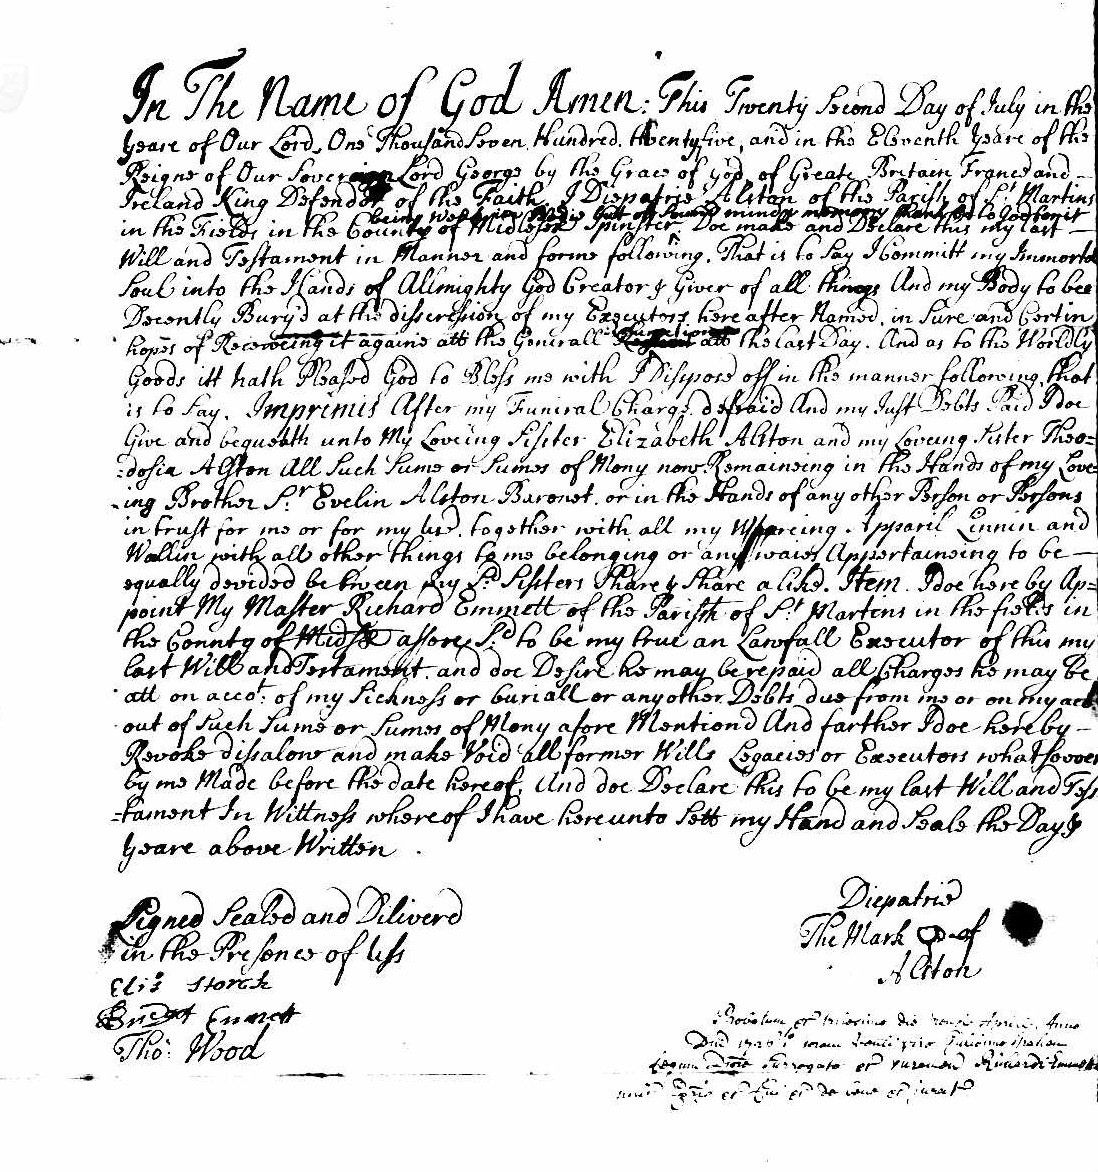 In The Name of God Amen: This Twenty Second Day of July in the
Yeare of Our Lord, One Thousand Seven Hundred twenty five, and in the Eleventh Yeare of the
Reigne of Our Sovereign Lord George by the Grace of God, of Greate Britain France and -
Ireland King Defender of the Faith, I Diepatrie Alston of the Parish of St Martins
being weak in Body but of Sound mind & memory thanks be to God for it
in the Fields in the County of Midlesex Spinster Doe make and Declare this my last -
Will and Testament in Manner and forme following, That is to Say I Committ my Immortal
Soul into the Hands of Allmighty God Creator & Giver of all things And my Body to bee
Decently Bury'd at the disscression of my Executors here after Named, in Sure and Certin
hopes of Receiveing it againe att the Generall att the last Day. And as to the Worldly
Goods itt hath Pleased God to Bless me with I Disspose off in the manner following, that
is to Say, Imprimis After my Funeral Charge defraid And my Just Debts Paid I doe
Give and bequeath unto My Loveing Sister Elizabeth Alston and my Loveing Sister Theo=
=dosia Alston All Such Sume or Sumes of Mony now Remaineing in the Hands of my Love
ing Brother Sr. Evelin Alston Baronet, or in the Hands of any other Person or Persons
in trust for me or for my use, together with all my Wareing Apparil Linnin and
Wollin with all other things to me belonging or any waies Appertaineing to be -
equally devided between my Sd Sisters Share & Share alike. Item. I doe here by Ap=
point My Master Richard Emmett of the Parish of St Martens in the fields in
the County of Midsx affore Sd to be my true an Lawfall Executor of this my
last Will and Testament, and doe Desire he may be repaid all Charges he may be
att on accot. of my Sickness or buriall or any other Debts due from me or on my acct
out of Such Sume or Sumes of Mony afore Mentiond And farther I doe hereby -
Revoke dissalow and make Void all former Wills Legacies or Executors whatsoever
by me Made before the date hereof, And doe Declare this to be my last Will and Tess
=tament In Wittness whereof I have hereunto Sett my Hand and Seale the Day &
Yeare above Written.
Signed Sealed and Diliverd
in the Presence of Uss
Eliz Storek
Bridget Emmett
Tho: Wood
Diepatrie
The Mark of
Alston